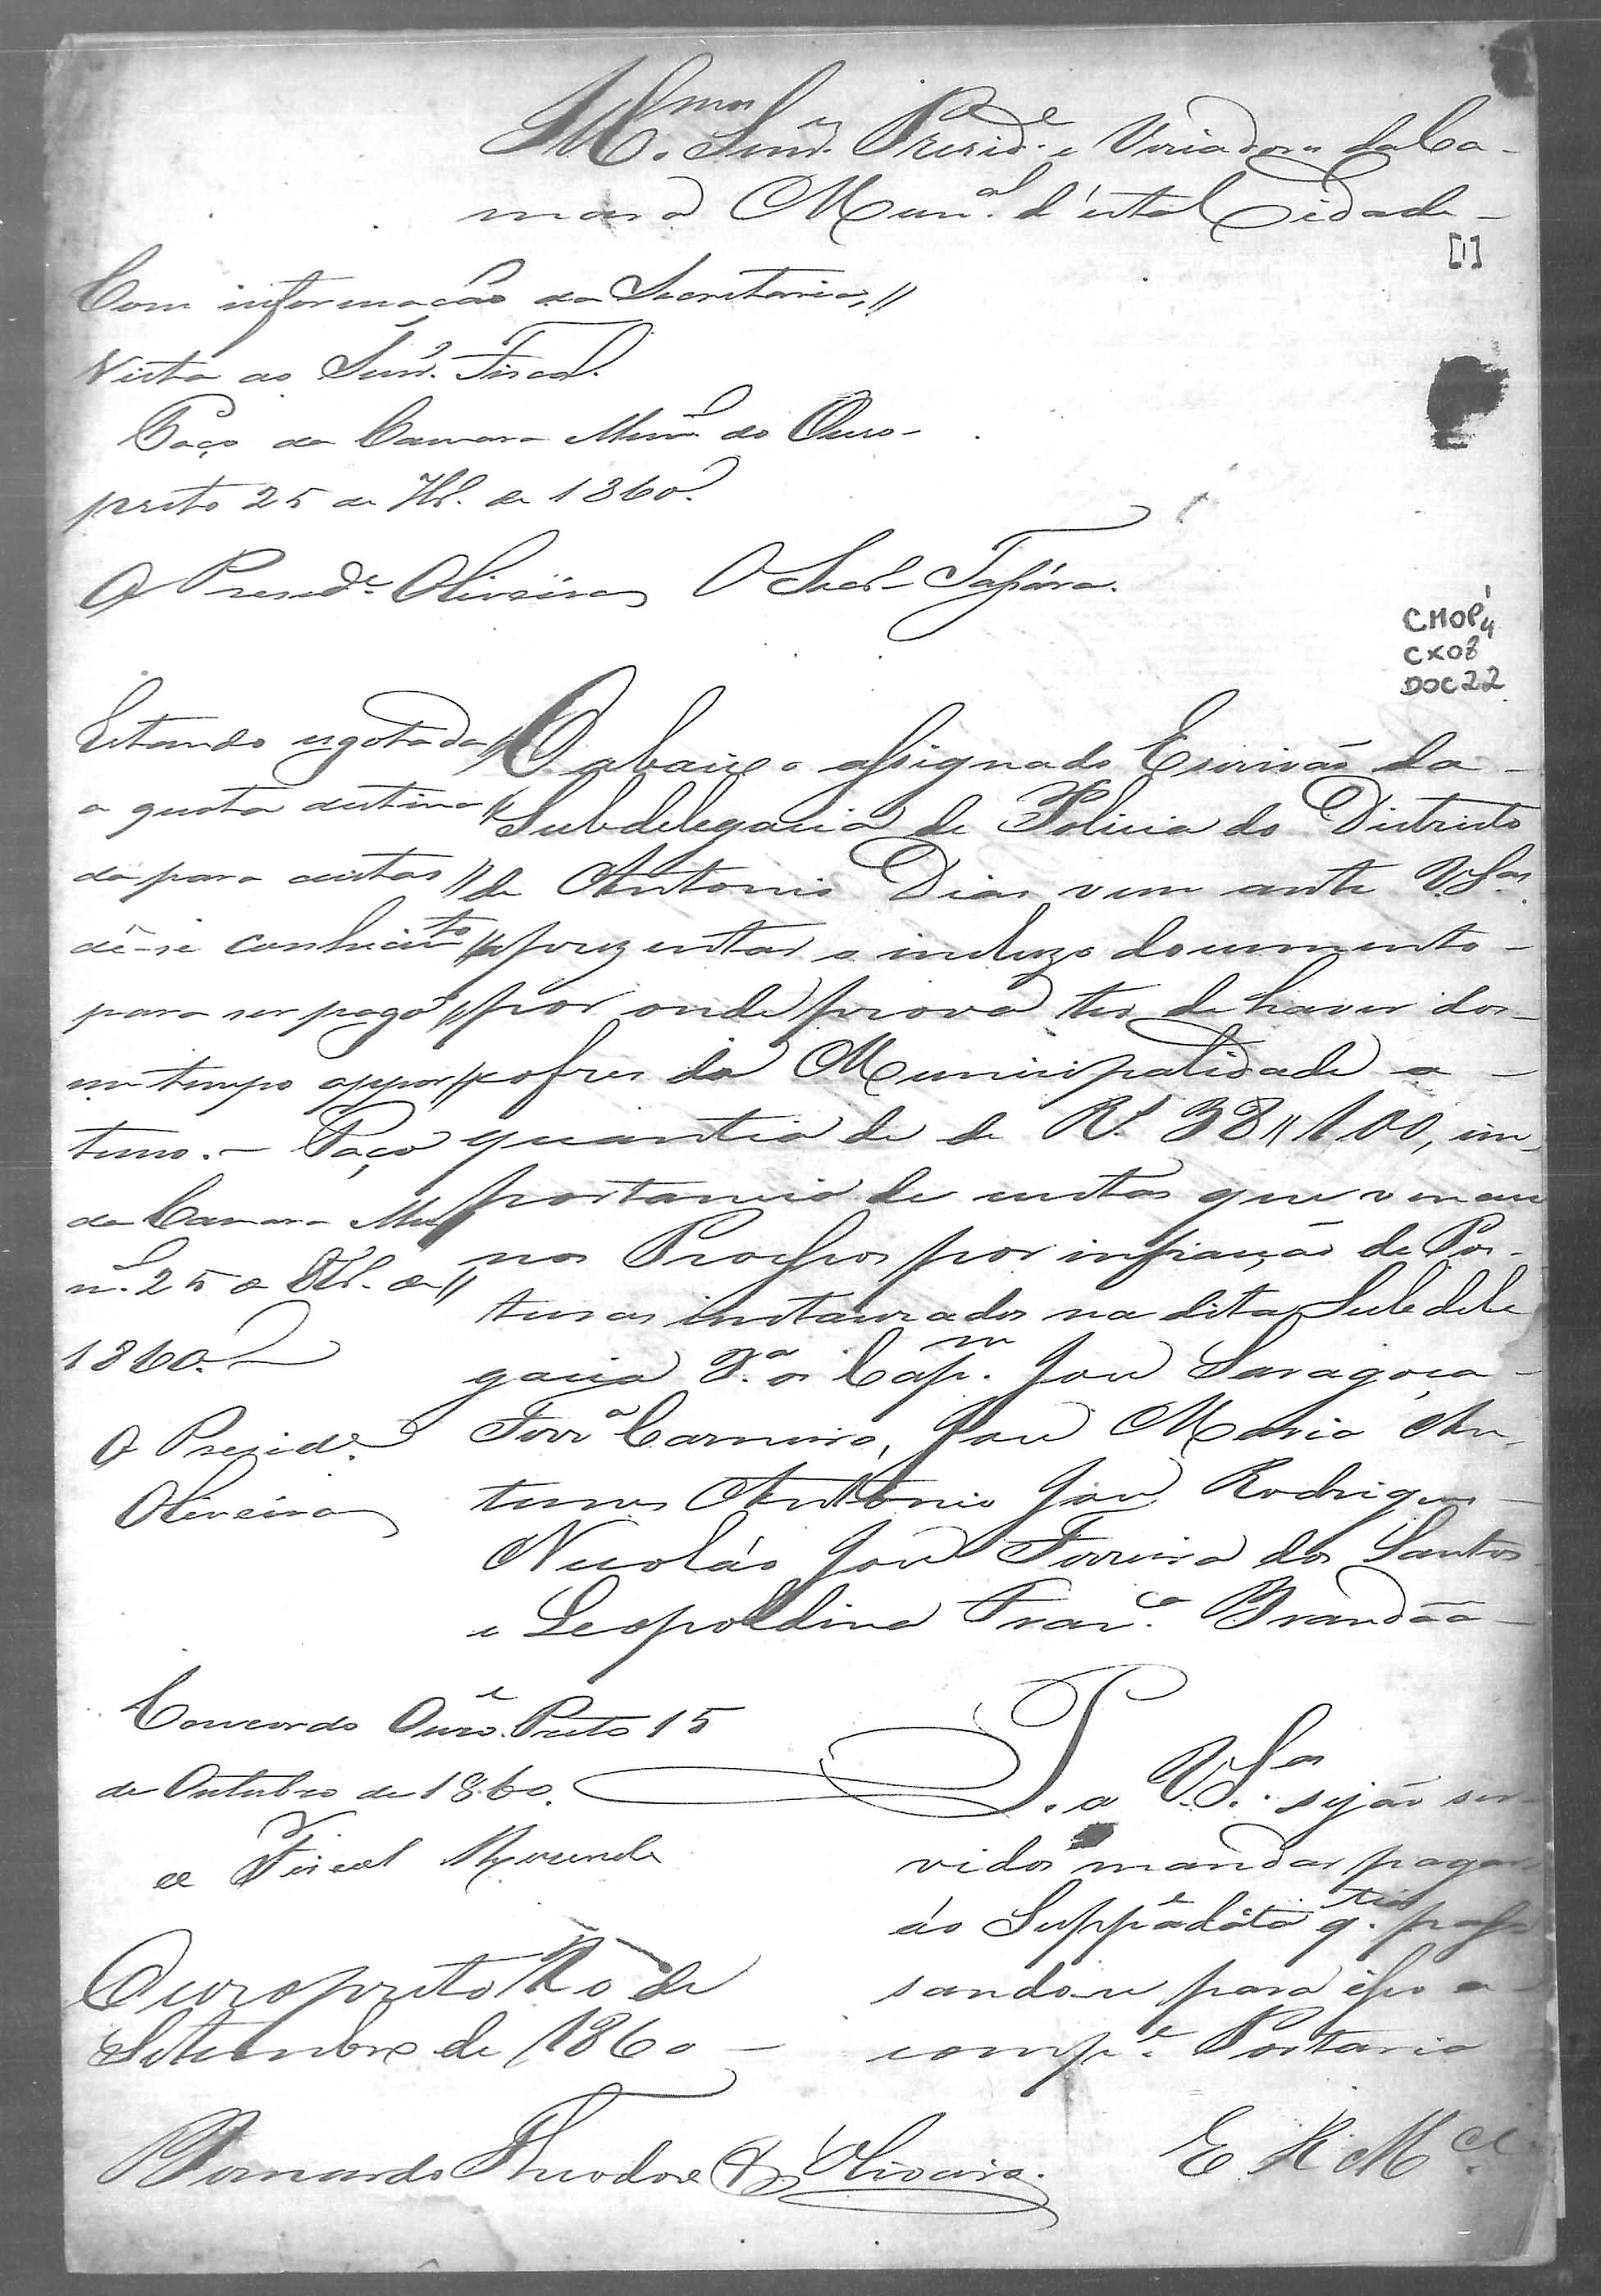 Illmos Snrs. Presid.e e Veriadores da Ca-
mara Mun.al d'esta Cidade
[1]
Com informação da Secretaria,
Vista ao Snr. Fiscal.
Paço da Camara Mun.l do Ouro-
preto 25 de 7br.o de 1860.
O Presid.e Oliveira O Secr.
CMOP 4
CX08
DOC 22
Estando esgotada
a quota destina
da para custas
dê-se conhecim.to
para ser pago
em tempo oppor
tuno. - Paço
da Camara Mu
n.l 25 de 8br.o de
1860.
O Presid.e
Oliveira
O abaixo assignado Escrivão da
Subdelegacia de Policia do Districto
de Antonio Dias vem ante V.Sas.
aprezentar o incluzo documento
por onde prova ter de haver dos
cofres da Municipalidade a
quantia de de R.s 38"100, im
portancia de custas que venceu
nos Processos por infração de Pos-
turas instaurados na dita Subdele
gacia P.a os Cap.m José Saragoça
Ferr.a Carneiro, José Maria An
tunes Antonio José Rodrigues
Nicoláo José Ferreira dos Santos
e Leopoldina Fran.ca Brandão
Concordo Ouro Preto 15
de Outubro de 1860.
o Fiscal Rezende
P. a V.Sas. sejão ser
vidos mandar pagar
ao Supp.e a dita q.tia pas
sando-se para isso a
comp.e Portaria
Ouropreto 20 de
Setembro de 1860
Bernardo Theodoro de Oliveira.
E R M.ce